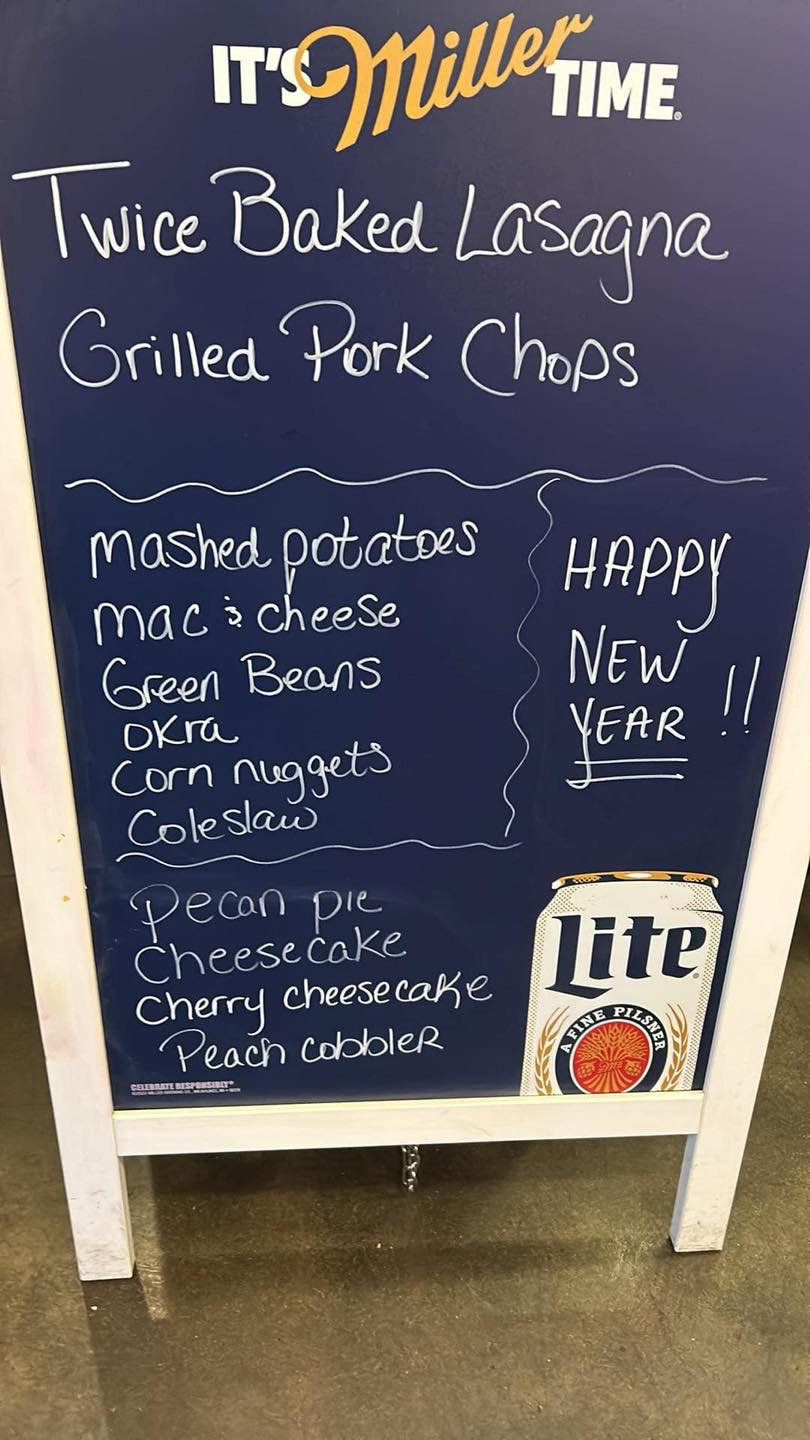 IT'S Miller TIME®
Twice Baked Lasagna
Grilled Pork Chops
mashed potatoes
mac & cheese
Green Beans
okra
Corn nuggets
Coleslaw
HAPPY
NEW
YEAR !!
Pecan pie
Cheesecake
Cherry cheesecake
Peach cobbler
Lite®
A FINE PILSNER
CELEBRATE RESPONSIBLY®